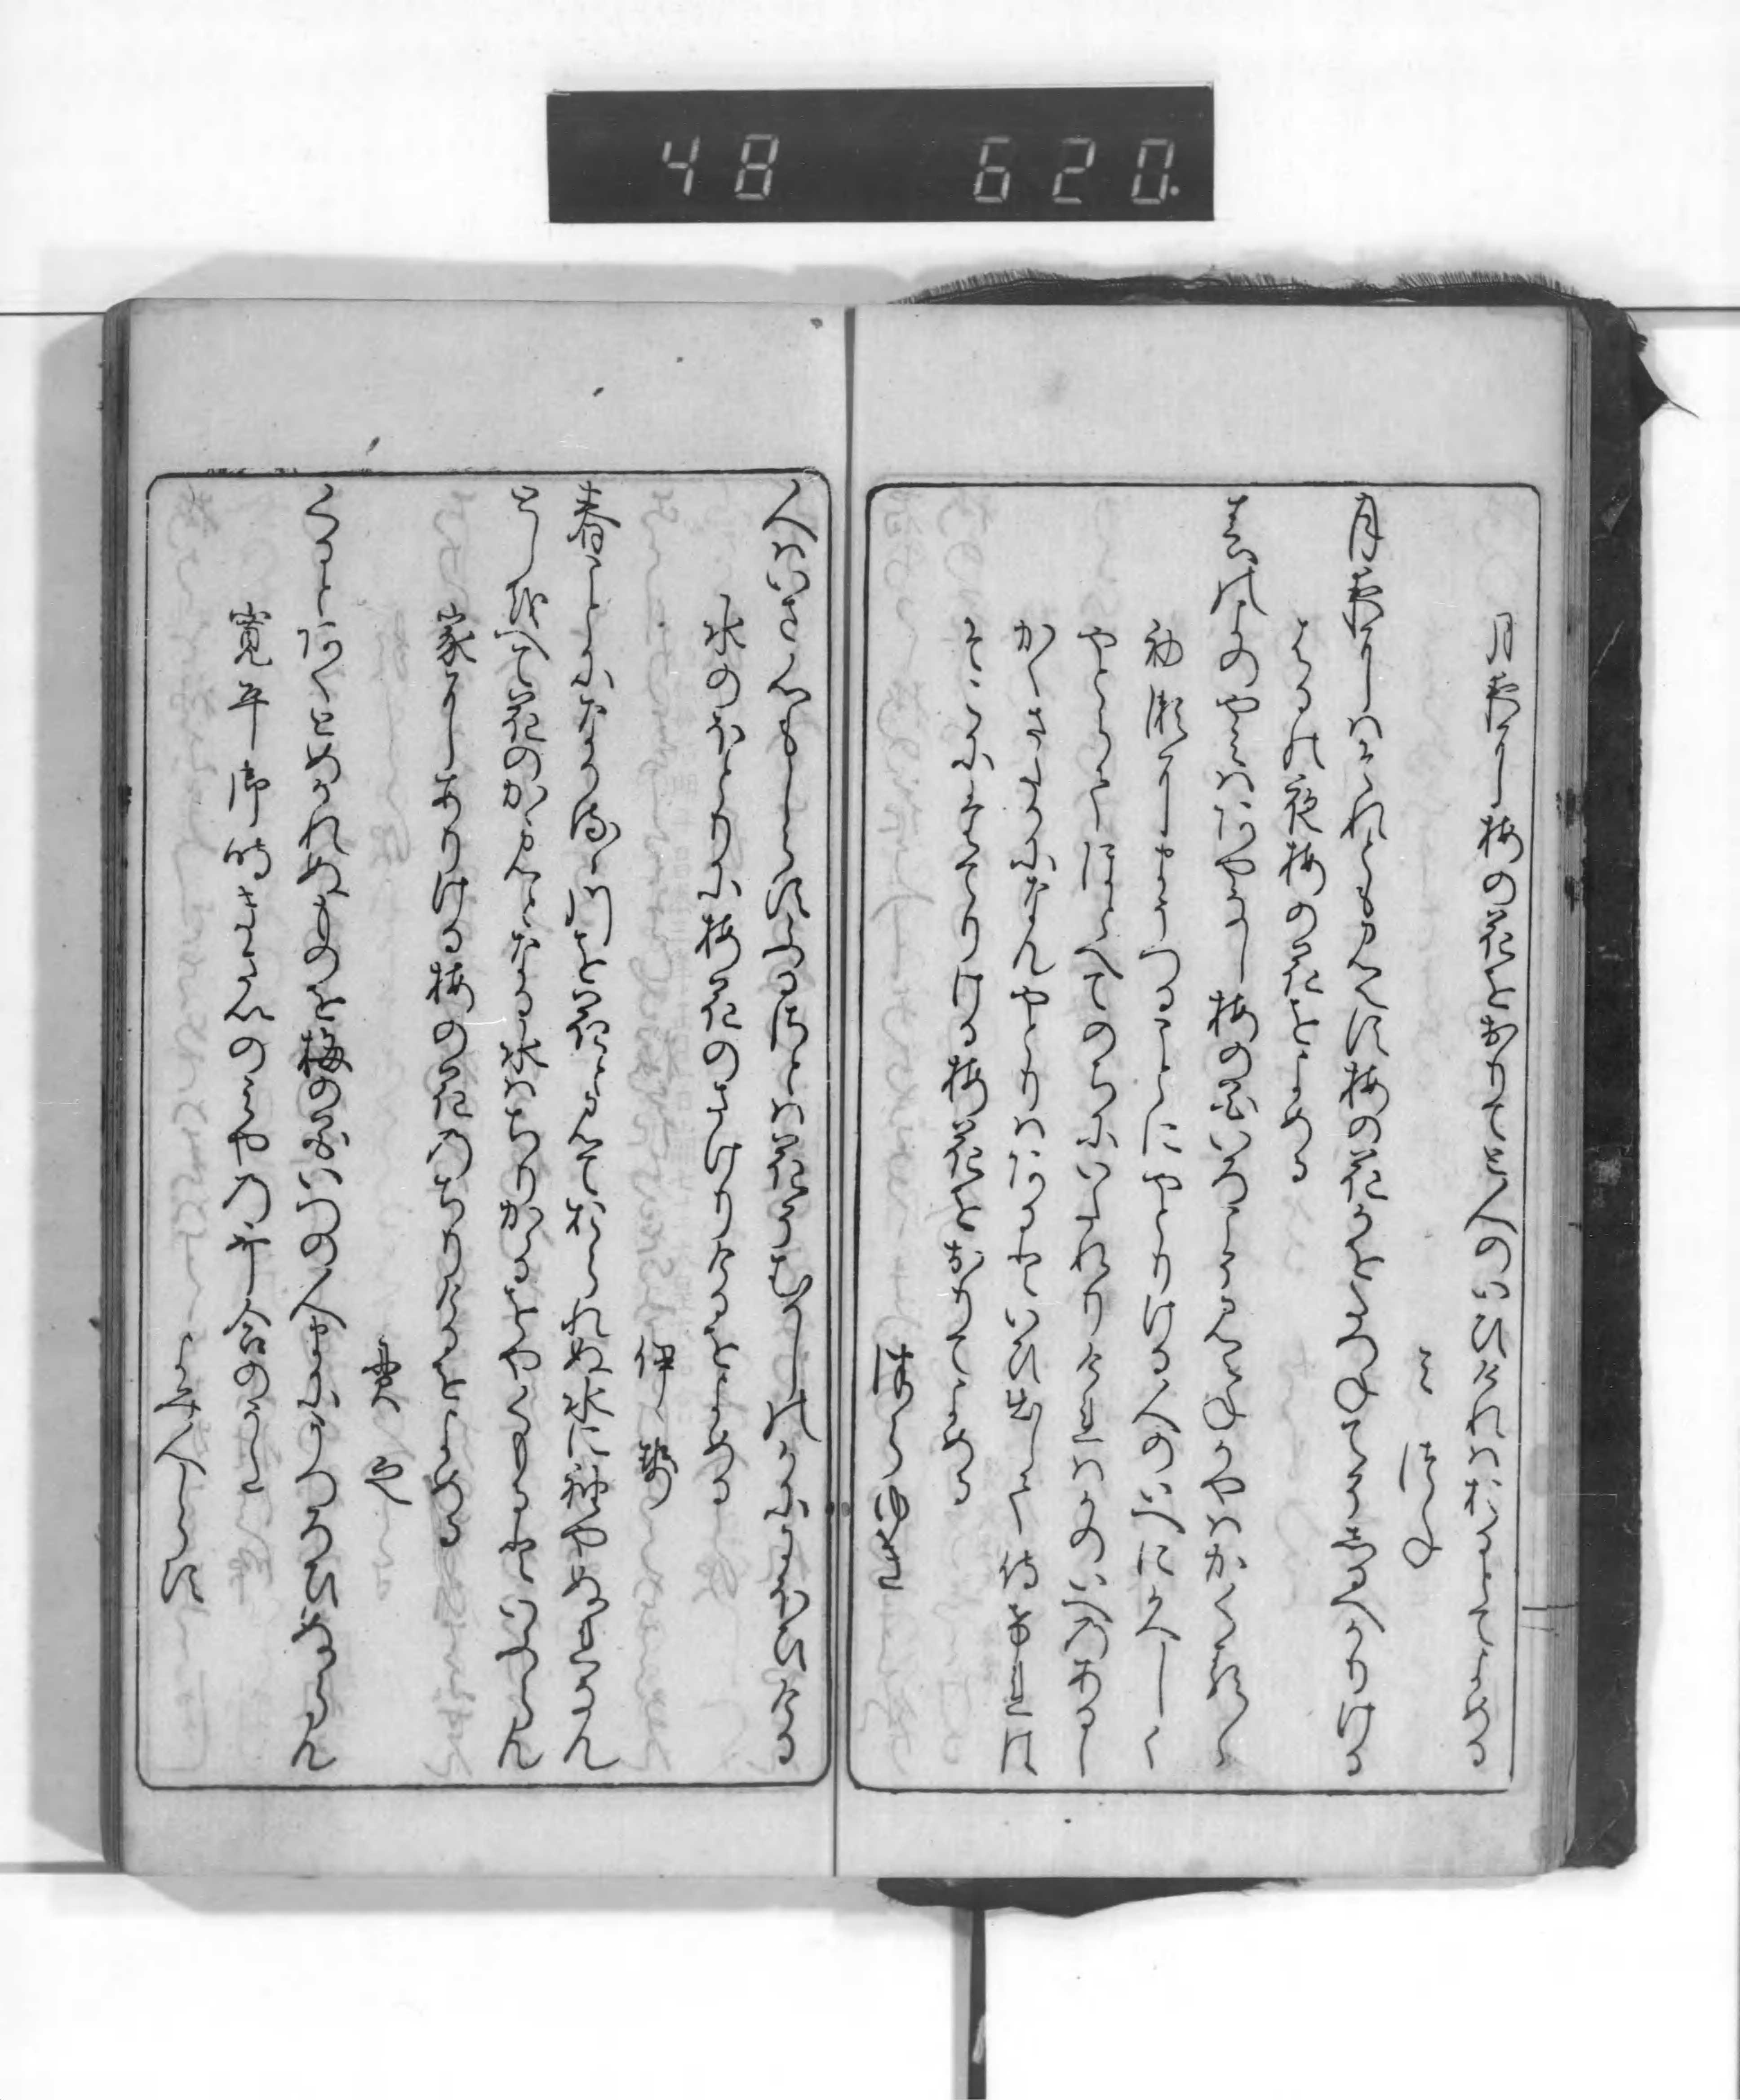 月夜に梅の花をおりてと人のいひけれはおるとてよめる
みつね
月夜にはそれともみえす梅の花かをたつねてそしるへかりける
はるの夜梅の花をよめる
春の夜のやみはあやなし梅の花いろこそみえねかやはかくるゝ
初瀬にまうつることにやとりける人のいへにひさしく
やとらてほとへてのちにいたれりけれはかのいへのあるし
かくさたかになんやとりはあるといひ出して侍けれは
そこにたてりける梅花をおりてよめる
つらゆき
人はいさ心もしらすふるさとは花そむかしのかににほひける
水のほとりに梅花のさけりけるをよめる
伊勢
春ことになかるゝ河を花とみておられぬ水に袖やぬれなん
としをへて花のかゝみとなる水はちりかゝるをやくもるといふらん
家にありける梅の花のちりけるをよめる
貫之
くるとあくとめかれぬものを梅の花いつの人まにうつろひぬらん
寛平御時きさいの宮の哥合のうた
よみ人しらす
48 620.